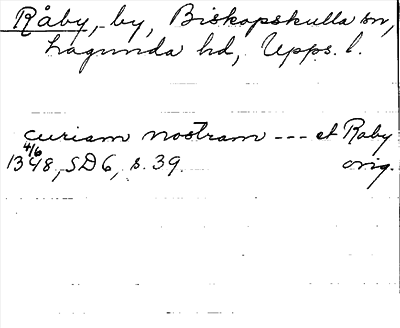 Råby, by, Biskopskulla sn,
Lagunda hd, Upps. l.
curiam nostram --- et Raby
4/6
1348, SD6, s. 39. orig.